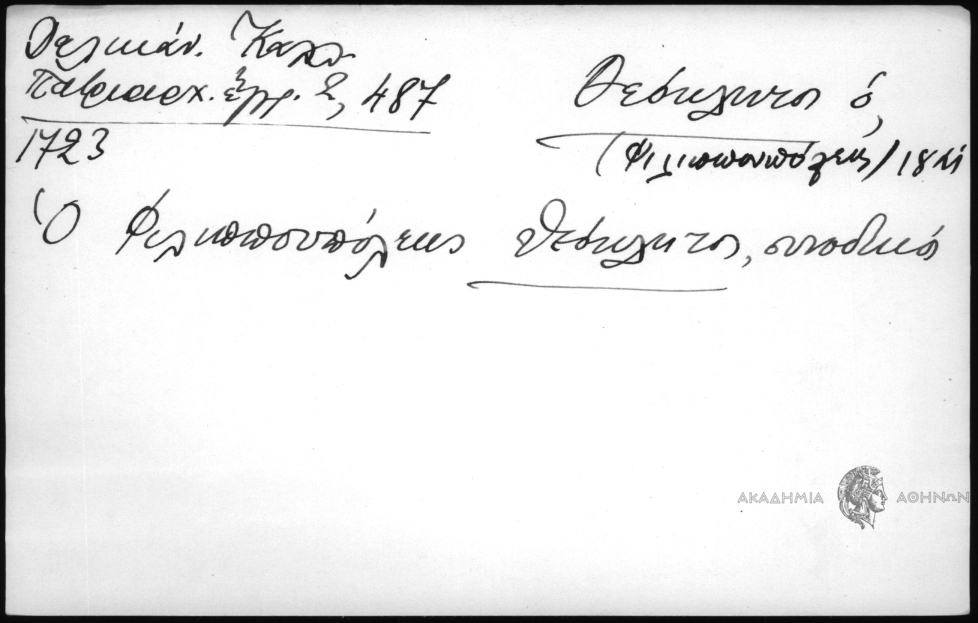 Δελικάν. Καλλ.
Πατριαρχ. ἔγγρ. 2, 487
1723
Θεόκλητος ὁ,
(Φιλιππουπόλεως)
Ὁ Φιλιππουπόλεως Θεόκλητος, συνοδικός
ΑΚΑΔΗΜΙΑ ΑΘΗΝΩΝ